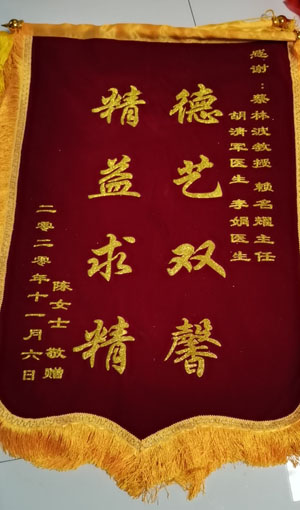 感谢：蔡林波教授 赖名耀主任
胡清军医生 李娟医生
德艺双馨
精益求精
陈女士 敬赠
二零二零年十一月六日